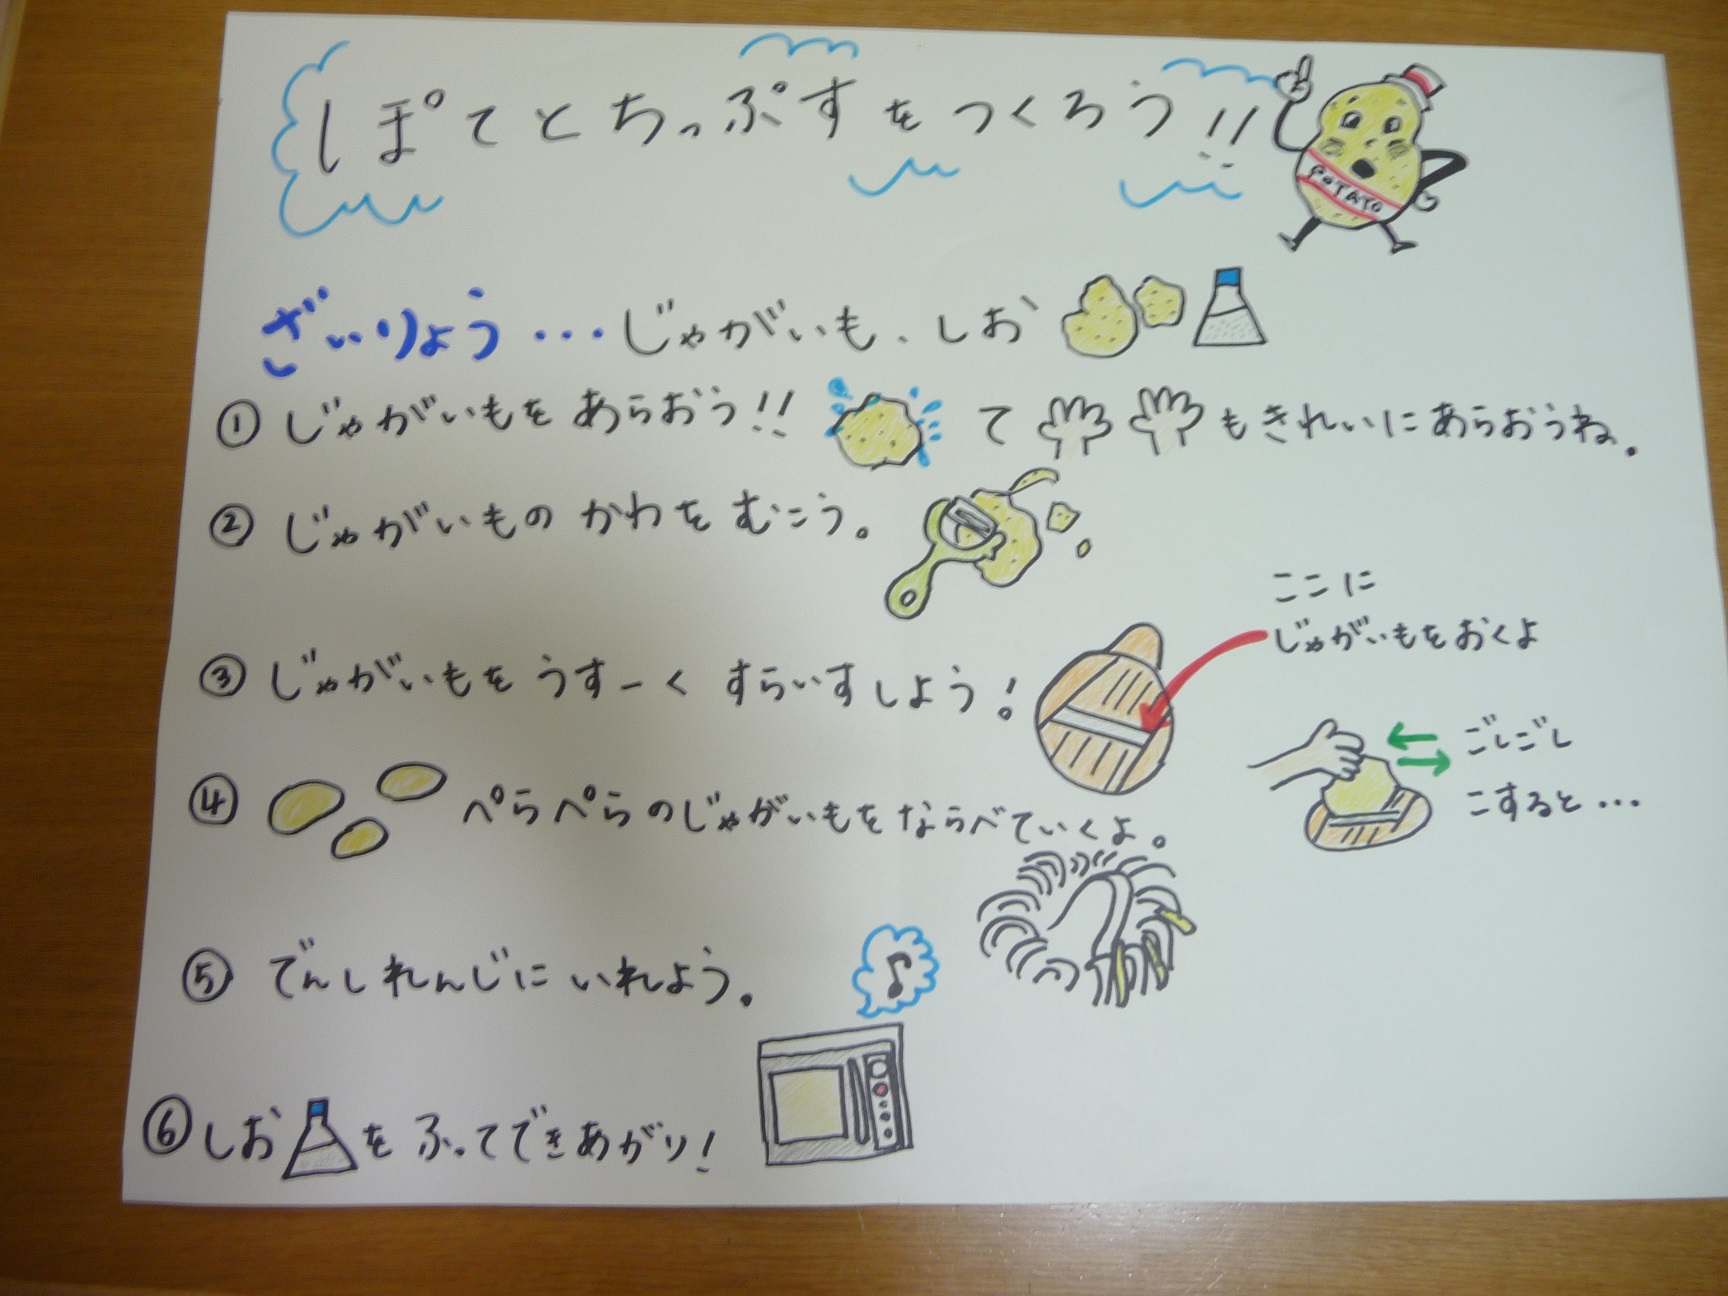 ぽてとちっぷすをつくろう!!
POTATO
ざいりょう・・・じゃがいも、しお
①じゃがいもをあらおう!! て もきれいにあらおうね。
②じゃがいものかわをむこう。
③じゃがいもをうすーくすらいすしよう!
ここに
じゃがいもをおくよ
ごしごし
こすると・・・
④ぺらぺらのじゃがいもをならべていくよ。
⑤でんしれんじにいれよう。
♪
⑥しおをふってできあがり!